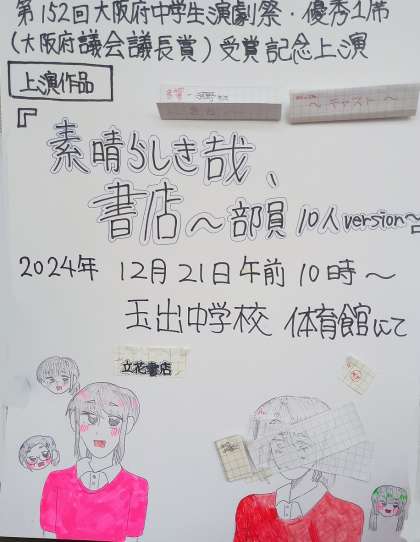 第152回大阪府中学生演劇祭・優秀1席
(大阪府議会議長賞)受賞記念上演
上演作品
『素晴らしき哉、
書店～部員10人version～』
2024年 12月21日午前10時～
玉出中学校 体育館にて
立花書店